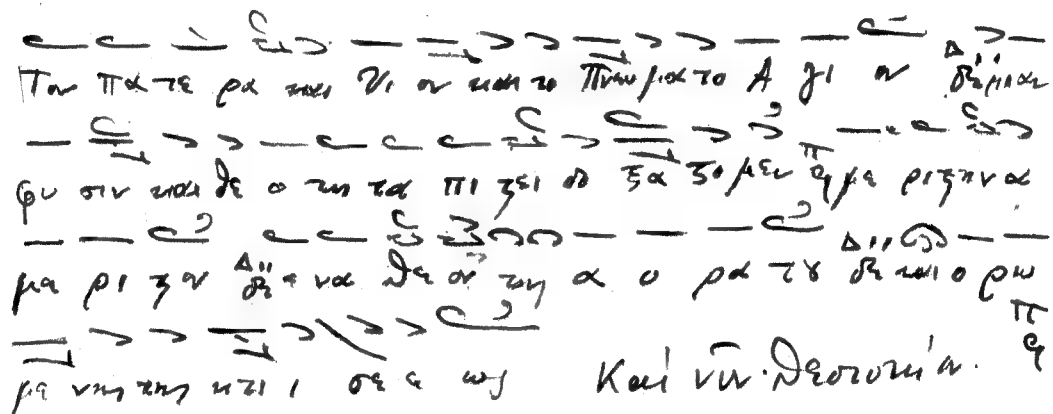 Τον Πα τε ρα και Υι ον και το Πνευ μα το Α γι ον μιαν
φυ σιν και θε ο τη τα πι στει δο ξα ζο μεν με ριστην α
με ρι στον ε να θε ον της α ο ρα του και ο ρω
με νης της κτι ι σε ως Και νῦν. Θεοτοκίον.